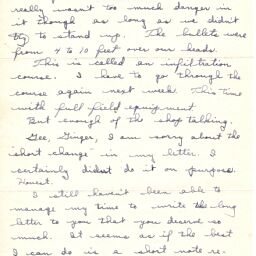 really wasn't too much danger in
it though as long as we didn't
try to stand up. The bullets were
from 4 to 10 feet over our heads.
This is called an infiltration
course. I have to go through the
course again next week. This time
with full field equipment
But enough of the shop talking.
Gee, Ginger, I am sorry about the
"short change" in my letter. I
certainly didn't do it on purpose.
Honest.
I still haven't been able to
manage my time to write the long
letter to you that you deserve so
much. It seems as if the best
I can do is a short note re-